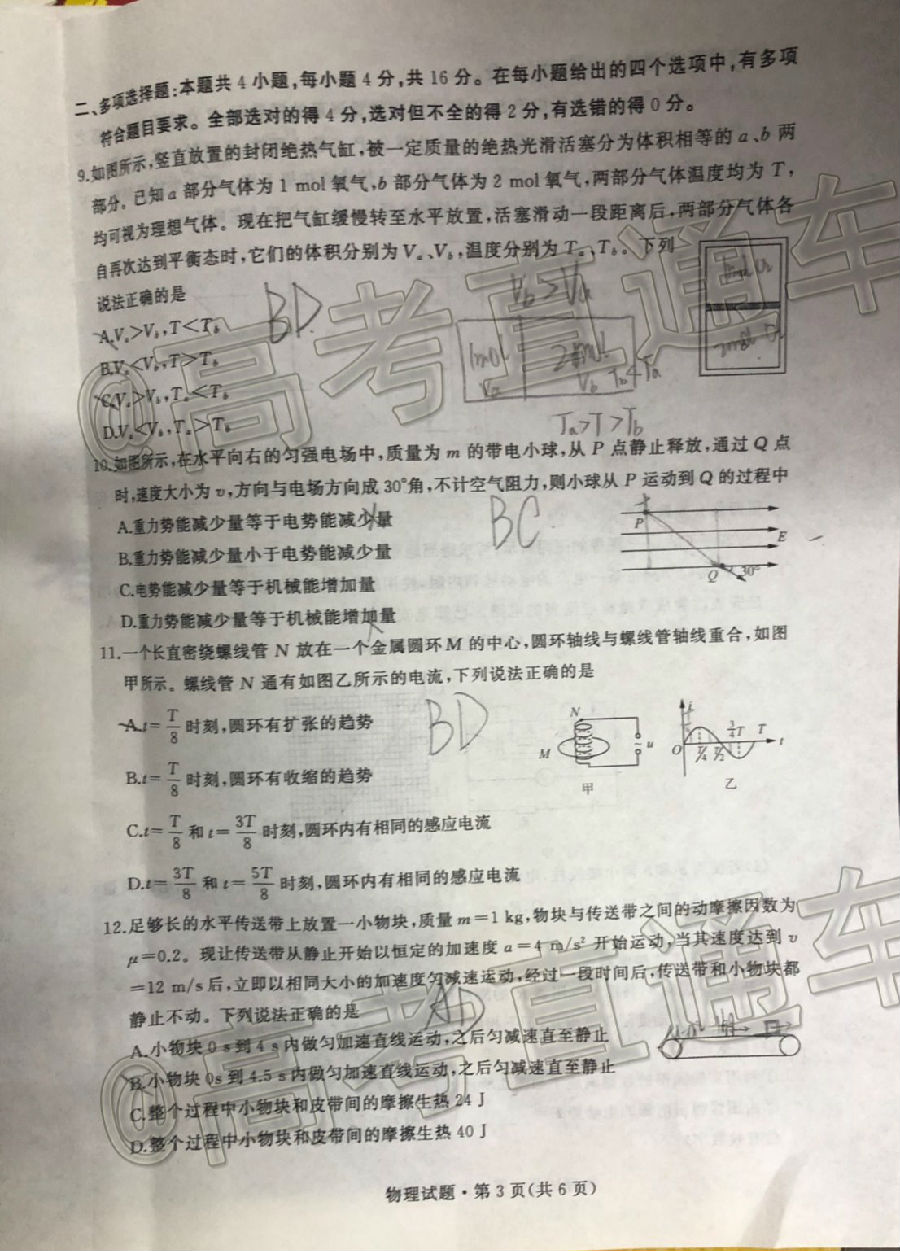 二、多项选择题:本题共4小题,每小题4分,共16分。在每小题给出的四个选项中,有多项
符合题目要求。全部选对的得4分,选对但不全的得2分,有选错的得0分。
9.如图所示,竖直放置的封闭绝热气缸,被一定质量的绝热光滑活塞分为体积相等的a、b两
部分,已知a部分气体为1 mol氧气,b部分气体为2 mol氧气,两部分气体温度均为T,
均可视为理想气体。现在把气缸缓慢转至水平放置,活塞滑动一段距离后,两部分气体各
自再次达到平衡态时,它们的体积分别为Vₐ、V_b,温度分别为Tₐ、T_b。下列
说法正确的是
A.Vₐ>V_b,Tₐ<T_b
B.Vₐ<V_b,Tₐ>T_b
C.Vₐ>V_b,Tₐ<T_b
D.Vₐ<V_b,Tₐ>T_b
BD.
V_b>Vₐ
1mol
Vₐ
2mol
V_b T_b<Tₐ
Tₐ>T>T_b
2mol O₂
10.如图所示,在水平向右的匀强电场中,质量为m的带电小球,从P点静止释放,通过Q点
时,速度大小为v,方向与电场方向成30°角,不计空气阻力,则小球从P运动到Q的过程中
A.重力势能减少量等于电势能减少量
B.重力势能减少量小于电势能减少量
C.电势能减少量等于机械能增加量
D.重力势能减少量等于机械能增加量
BC
P
E
Q 30°
11.一个长直密绕螺线管N放在一个金属圆环M的中心,圆环轴线与螺线管轴线重合,如图
甲所示。螺线管N通有如图乙所示的电流,下列说法正确的是
A.t=T/8时刻,圆环有扩张的趋势
B.t=T/8时刻,圆环有收缩的趋势
C.t=T/8和t=3T/8时刻,圆环内有相同的感应电流
D.t=3T/8和t=5T/8时刻,圆环内有相同的感应电流
BD
N
M
u
甲
i
O T/4 T/2 3/4T T t
乙
12.足够长的水平传送带上放置一小物块,质量m=1 kg,物块与传送带之间的动摩擦因数为
μ=0.2。现让传送带从静止开始以恒定的加速度a=4 m/s²开始运动,当其速度达到v
=12 m/s后,立即以相同大小的加速度匀减速运动,经过一段时间后,传送带和小物块都
静止不动。下列说法正确的是
AD
A.小物块0 s到4 s内做匀加速直线运动,之后匀减速直至静止
B.小物块0s到4.5 s内做匀加速直线运动,之后匀减速直至静止
C.整个过程中小物块和皮带间的摩擦生热24 J
D.整个过程中小物块和皮带间的摩擦生热40 J
物理试题·第3页(共6页)
@高考直通车
@高考直通车